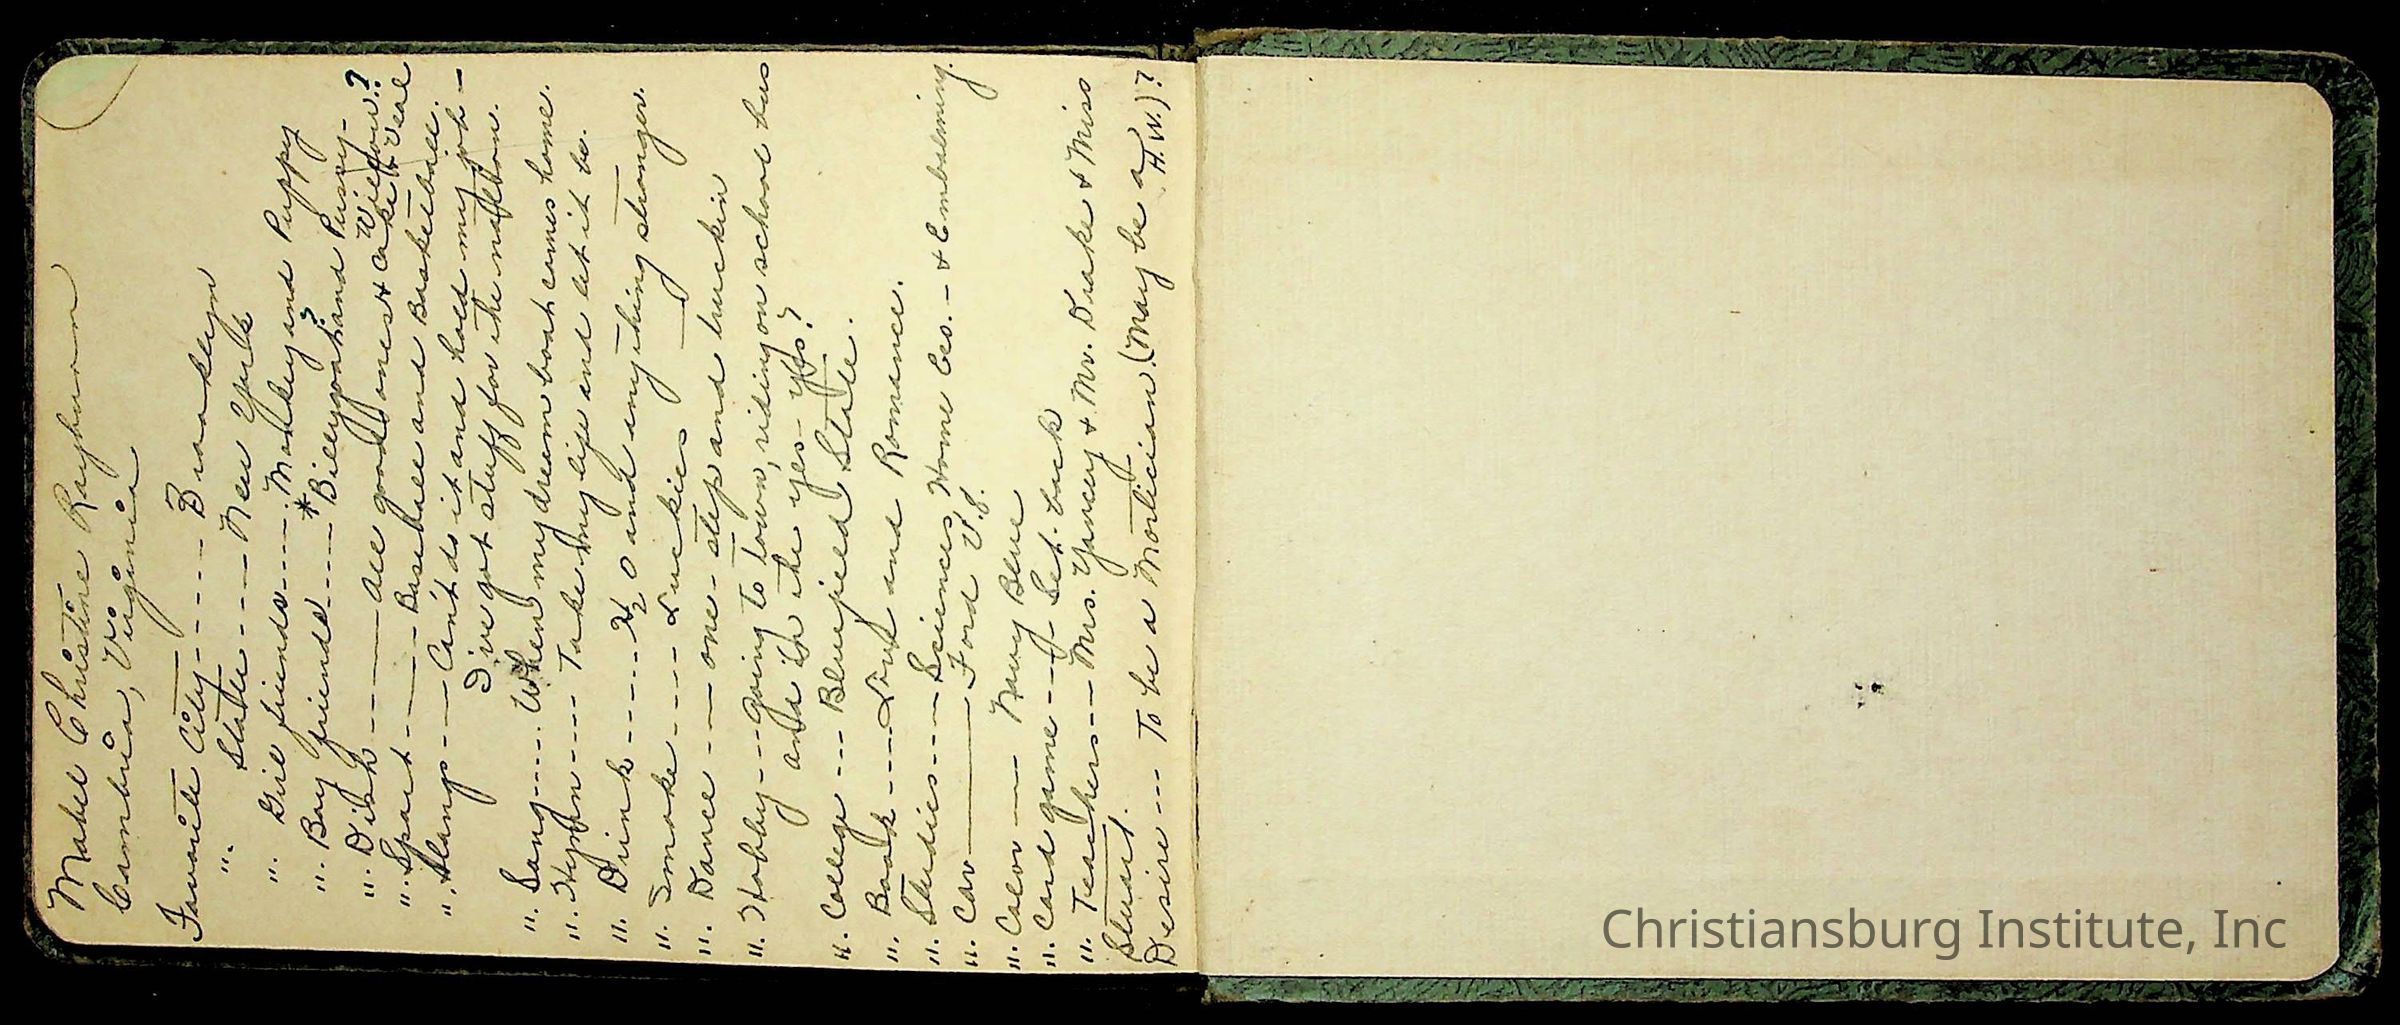 Mabel Christine Rayburn
Cambria, Virginia
Favorite City ----- Brooklyn
". State ---- New York
". Girl friends ---- Monkey and Puppy
". Boy friends ---- *Billy ? and Pussy-Willow?
". Dish ---- All good ones + Cake + Veal
". Sport ---- Baseball and Basketball.
". Slang --- Can't do it and hold my job -
I've got stuff for the
". Song ---- When my dream boat comes home.
". Hymn ---- Take my life and let it be.
". Drink ---- H2O and anything stronger.
". Smoke ---- Luckies
". Dance --- one-step and truckin
". Hobby --- going to town, riding on school bus
and is the yes- yes?
". College --- Bluefield State.
". Book --- Love and Romance.
". Studies --- Sciences, Home Ec. - + Embalming.
". Car ---- Ford V.8.
". Color --- Navy Blue
". Card game --- Set-back
". Teachers --- Mrs. Yancey + Mr. Drake + Miss
Stuart.
Desire --- To be a Mortician. (May be a H.W.)?
Christiansburg Institute, Inc